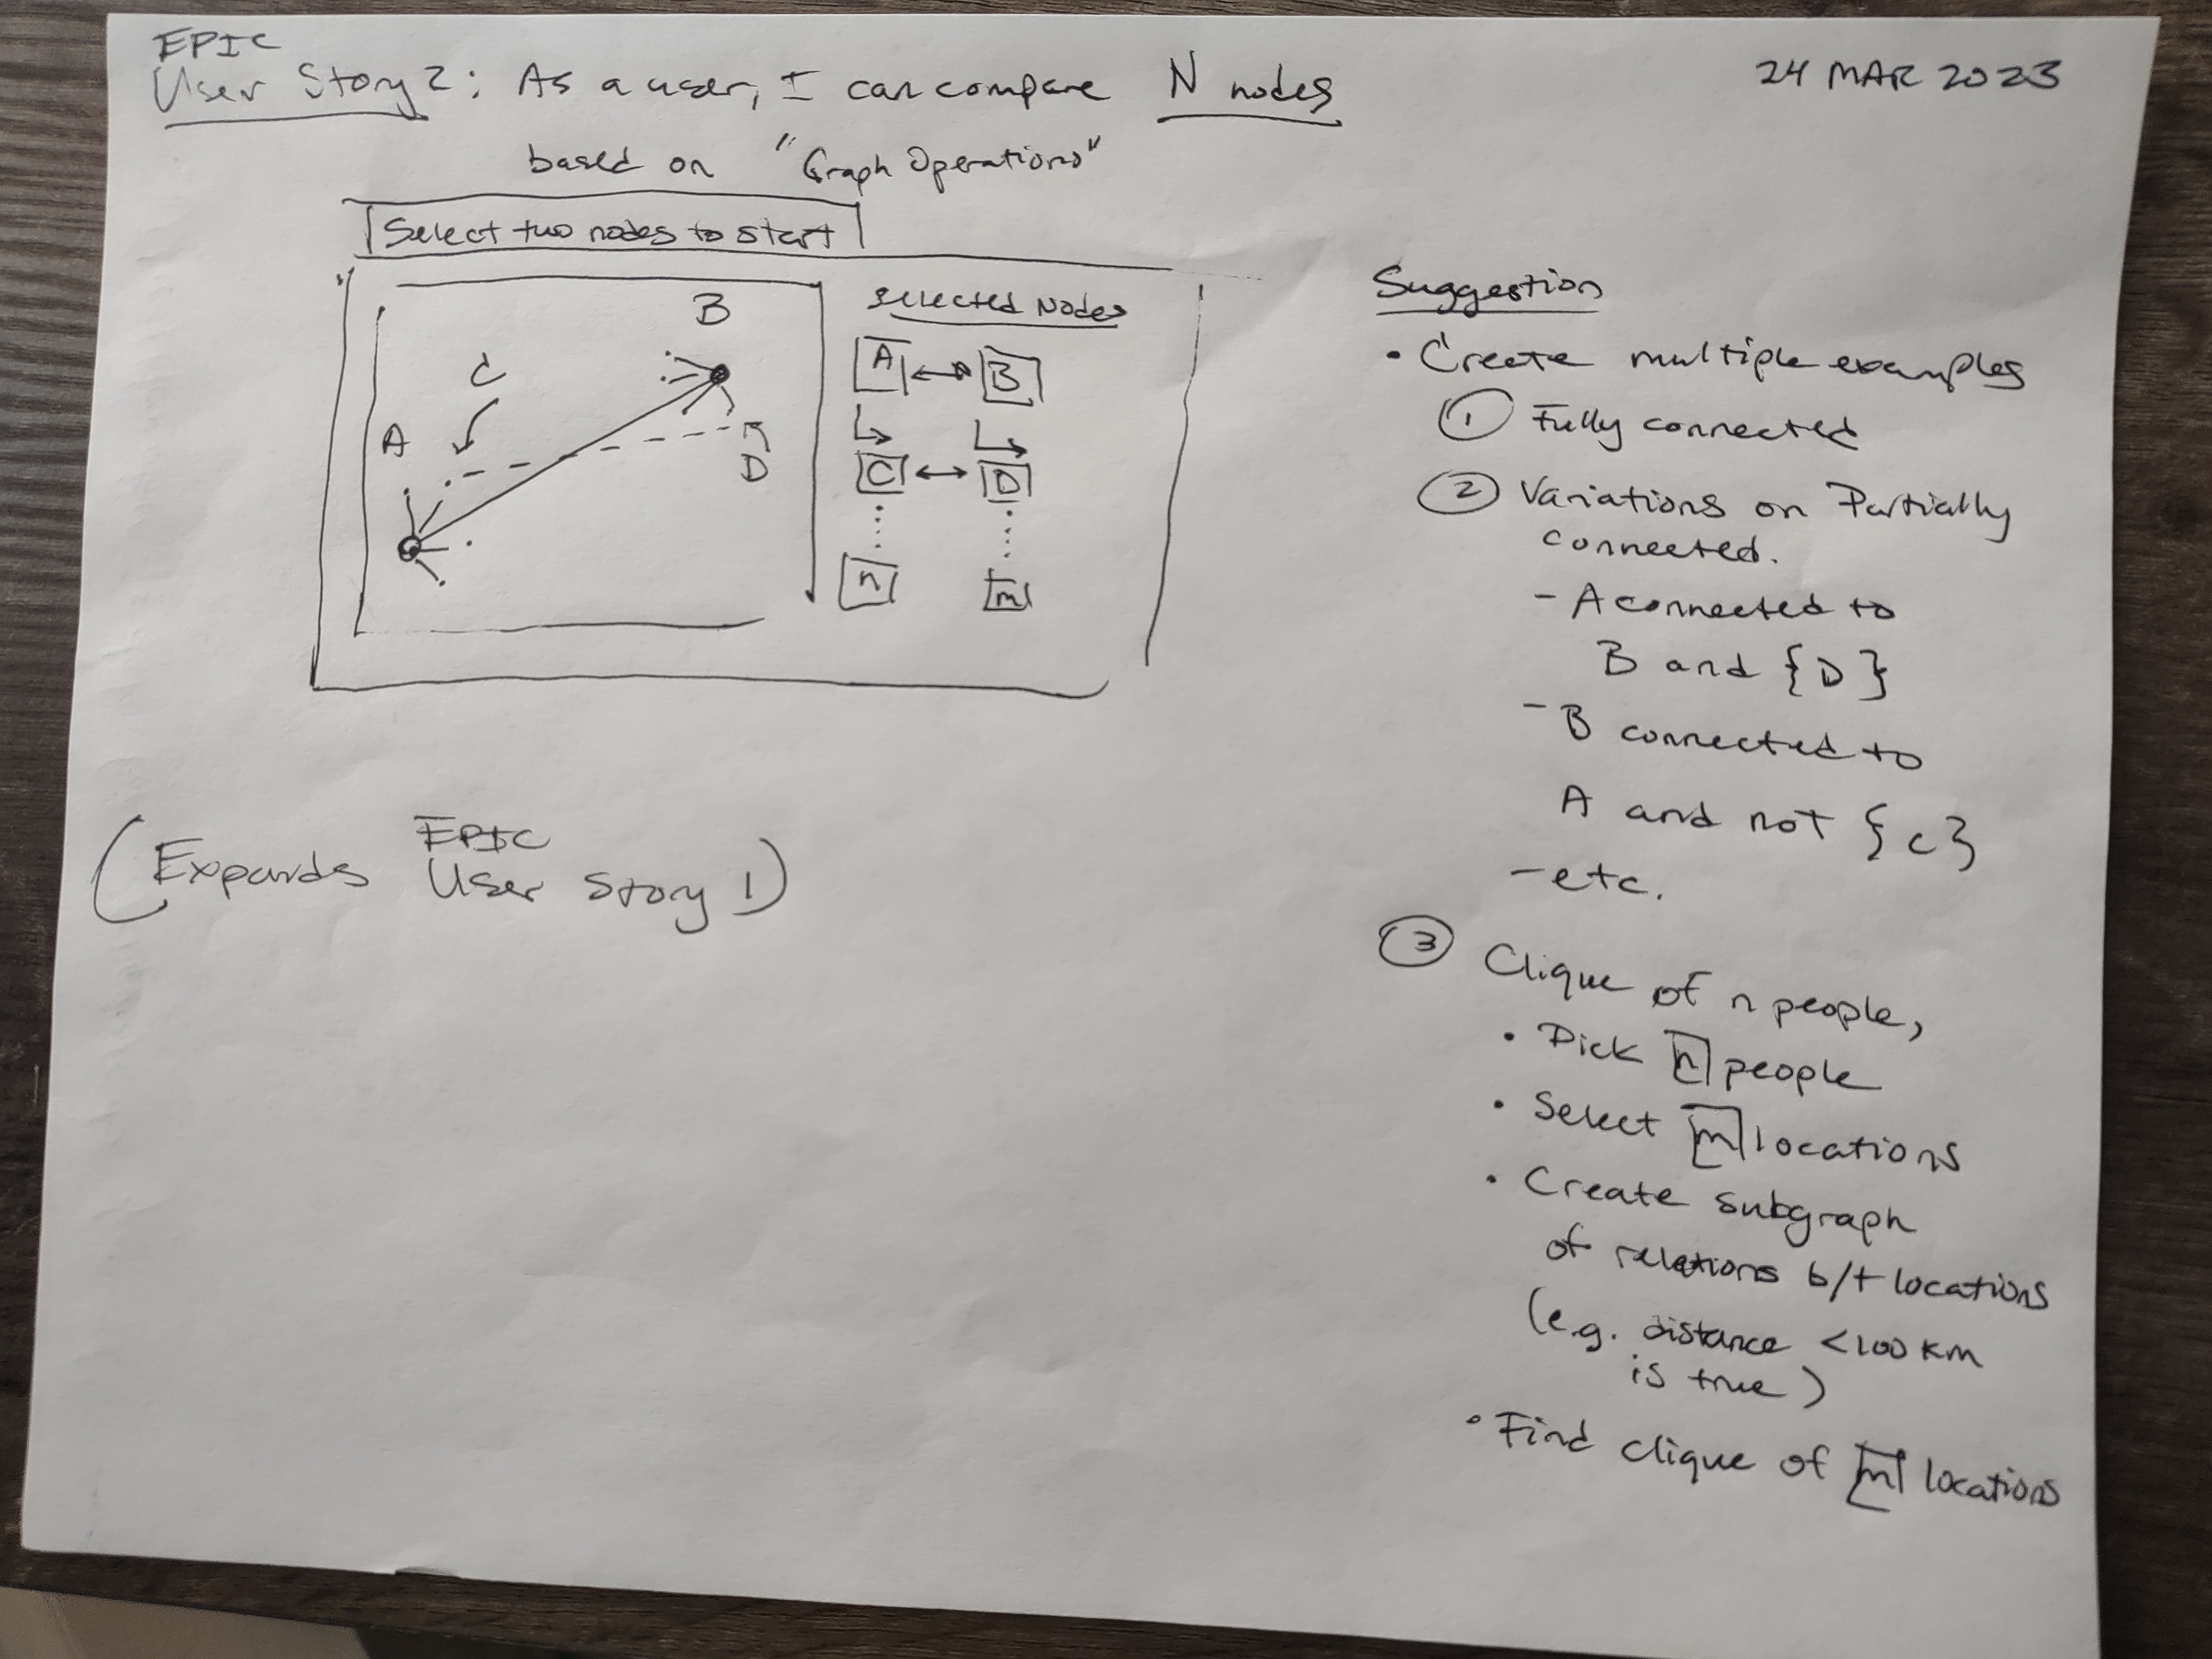 EPIC
User Story 2: As a user, I can compare N nodes
24 MAR 2023
based on "Graph Operations"
Select two nodes to start
B
C
A
D
Selected Nodes
A ↔ B
↳ ↳
C ↔ D
n m
(Expands EPIC User Story 1)
Suggestion
• Create multiple examples
① Fully connected
② Variations on Partially
connected.
- A connected to
B and {D}
- B connected to
A and not {C}
- etc.
③ Clique of n people,
• Pick n people
• Select m locations
• Create subgraph
of relations b/t locations
(e.g. distance <100 km
is true)
• Find clique of m locations